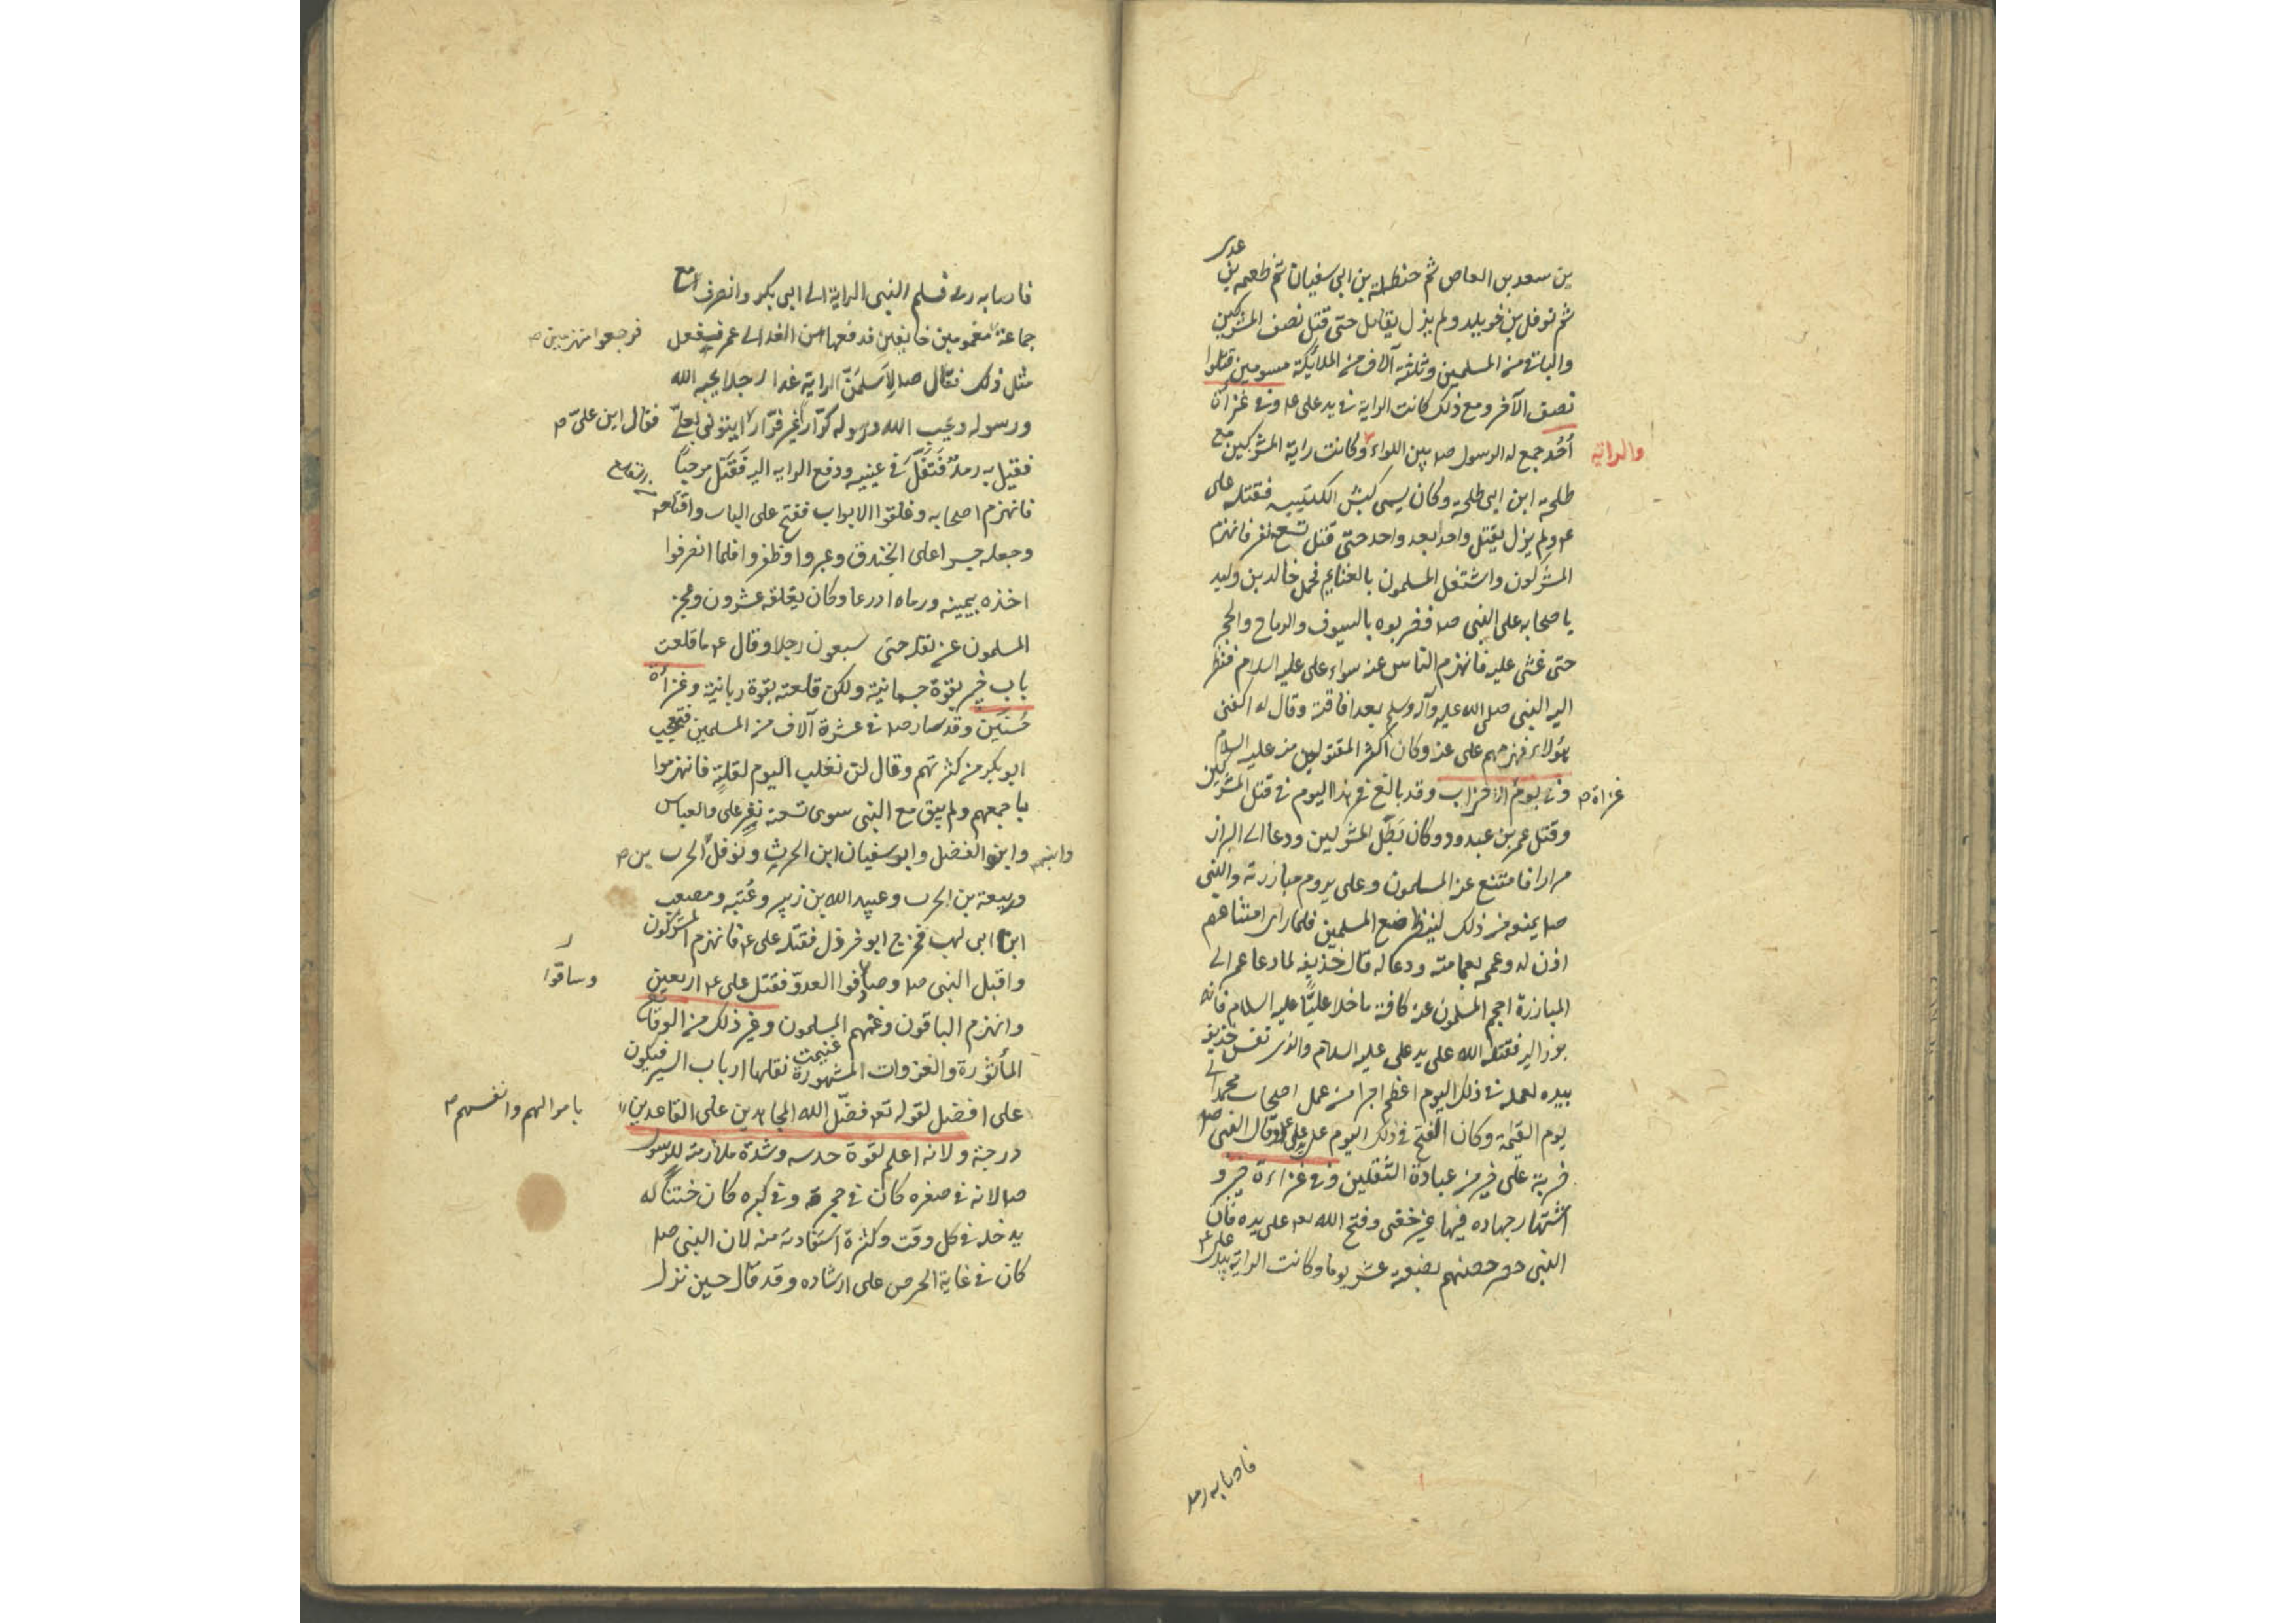 عدى
بن سعد بن العاص ثم حنظلة بن ابى سفيان ثم طعمه بن
ثم نوفل بن خويلد ولم يزل يقاتل حتى قتل نصف المشركين
والباقى من المسلمين وثلثة آلاف من الملائكة مسومين قتلوا
نصف الآخر ومع ذلك كانت الراية فى يد على ع‍ وفى غزاة
والراية
اُحُد جمع له الرسول ص‍ بين اللواء وكانت راية المشركين مع
طلحة ابن ابى طلحة وكان يسمى كبش الكتيبه فقتله على
ع‍ ولم يزل يقتل واحدا بعد واحد حتى قتل تسعة نفر فانهزم
المشركون واشتغل المسلمون بالغنايم فحمل خالد بن وليد
باصحابه على النبى ص‍ فضربوه بالسيوف والرماح والحجر
حتى غشى عليه فانهزم الناس عنه سواء على عليه السلام فنظر
اليه النبى صلى الله عليه وآله وسلم بعد افاقته وقال له اكفنى
هؤلاء فهزمهم على عنه وكان اكثر المقتولين منه عليه السلام
غزاة
وفى يوم الاحزاب وقد بالغ فى هذا اليوم فى قتل المشركين
وقتل عمر بن عبدود وكان بَطَل المشركين ودعا الى البراز
مرارا فامتنع عنه المسلمون وعلى يروم مبارزته والنبى
ص‍ يمنعه من ذلك لينظر صنع المسلمين فلما راى امتناعهم
اذن له وعممه بعمامته ودعا له قال حذيفه لما دعا عمر الى
المبارزة احجم المسلمون عنه كافة ما خلا عليًّا عليه السلام فانه
برز اليه فقتله الله على يد على عليه السلام والذى نفس حذيفه
بيده لعمله فى ذلك اليوم اعظم اجرا من عمل اصحاب محمد الى
يوم القيمة وكان الفتح فى ذلك اليوم على يد على ع‍ وقال النبى ص‍
ضربة على خير من عبادة الثقلين وفى غزاءة خيبر و
اشتهار جهاده فيها غير خفى وفتح الله تع‍ على يده فان
النبى حصر حصنهم بضعة عشر يوما وكانت الراية بيد على ع‍
فاصابه رمد
فاصابه رمد فسلم النبى الراية الى ابى بكر وانصرف مع
جماعة مغمومين خايفين فدفعها من الغد الى عمر ففعل
فرجعوا منهزمين
مثل ذلك فقال ص‍ لاُسَلمَنّ الراية غدا رجلا يحبه الله
ورسوله ويحب الله ورسوله كرّار غير فرّار ايتونى بعلىّ
فقال اين علىّ
فقيل به رمدٌ فتَفَلَ فى عينيه ودفع الراية اليه فقَتَل مرحباً
فانهزم اصحابه وغلقوا الابواب ففتح على الباب واقتلعه
وجعله جسرا على الخندق وعبروا وظفروا فلما انصرفوا
اخذه بيمينه ورماه اذرعا وكان يغلقه عشرون وعجز
المسلمون عن نقله حتى سبعون رجلا وقال ع‍ ما قلعت
باب خيبر بقوة جسمانية ولكن قلعته بقوة ربانية وغزاة
حُنَين وقد سار ص‍ فى عشرة آلاف من المسلمين فتعجب
ابو بكر من كثرتهم وقال لن نغلب اليوم لقلةٍ فانهزموا
باجمعهم ولم يبق مع النبى سوى تسعة نفر على والعباس
وابنه الفضل وابو سفيان ابن الحرث ونوفل الحرب
بن
وربيعة بن الحرب وعبيد الله بن زبير وعُتبه ومصعب
ابن ابى لهب فخرج ابو جرول فقتله على ع‍ فانهزم المشركون
واقبل النبى ص‍ وصافوا العدوّ فقتل على ع‍ اربعين
وساقوا
وانهزم الباقون وغنمهم المسلمون وغير ذلك من الوقايع
المأثورة والغزوات المشهورة نقلها ارباب السير فيكون
على افضل لقوله تع‍ فضّل الله المجاهدين على القاعدين
باموالهم وانفسهم
درجة ولانه اعلم لقوة حدسه وشدة ملازمته للرسول
ص‍ لانه فى صغره كان فى حجره وفى كبره كان ختنًا له
يدخله فى كل وقت وكثرة استفادته منه لان النبى ص‍
كان فى غاية الحرص على ارشاده وقد قال حين نزل